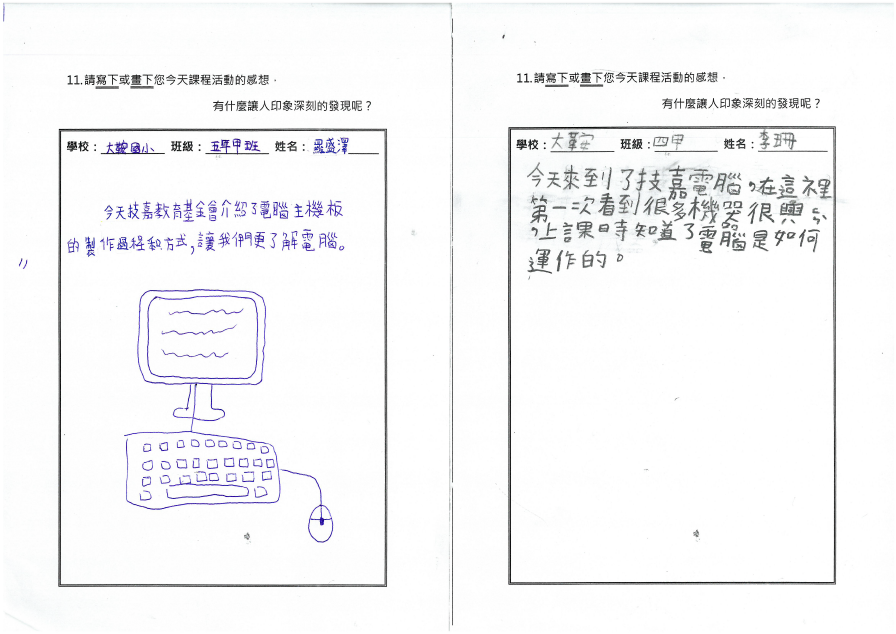 11.請寫下或畫下您今天課程活動的感想．
有什麼讓人印象深刻的發現呢？
學校：大鞍國小 班級：五年甲班 姓名：盛澤
今天技嘉教育基金會介紹了電腦主機板
的製作過程和方式，讓我們更了解電腦。
11.請寫下或畫下您今天課程活動的感想．
有什麼讓人印象深刻的發現呢？
學校：大鞍 班級：四甲 姓名：李珊
今天來到了技嘉電腦。在這裡
第一次看到很多機器很興
，上課時知道了電腦是如何
運作的。